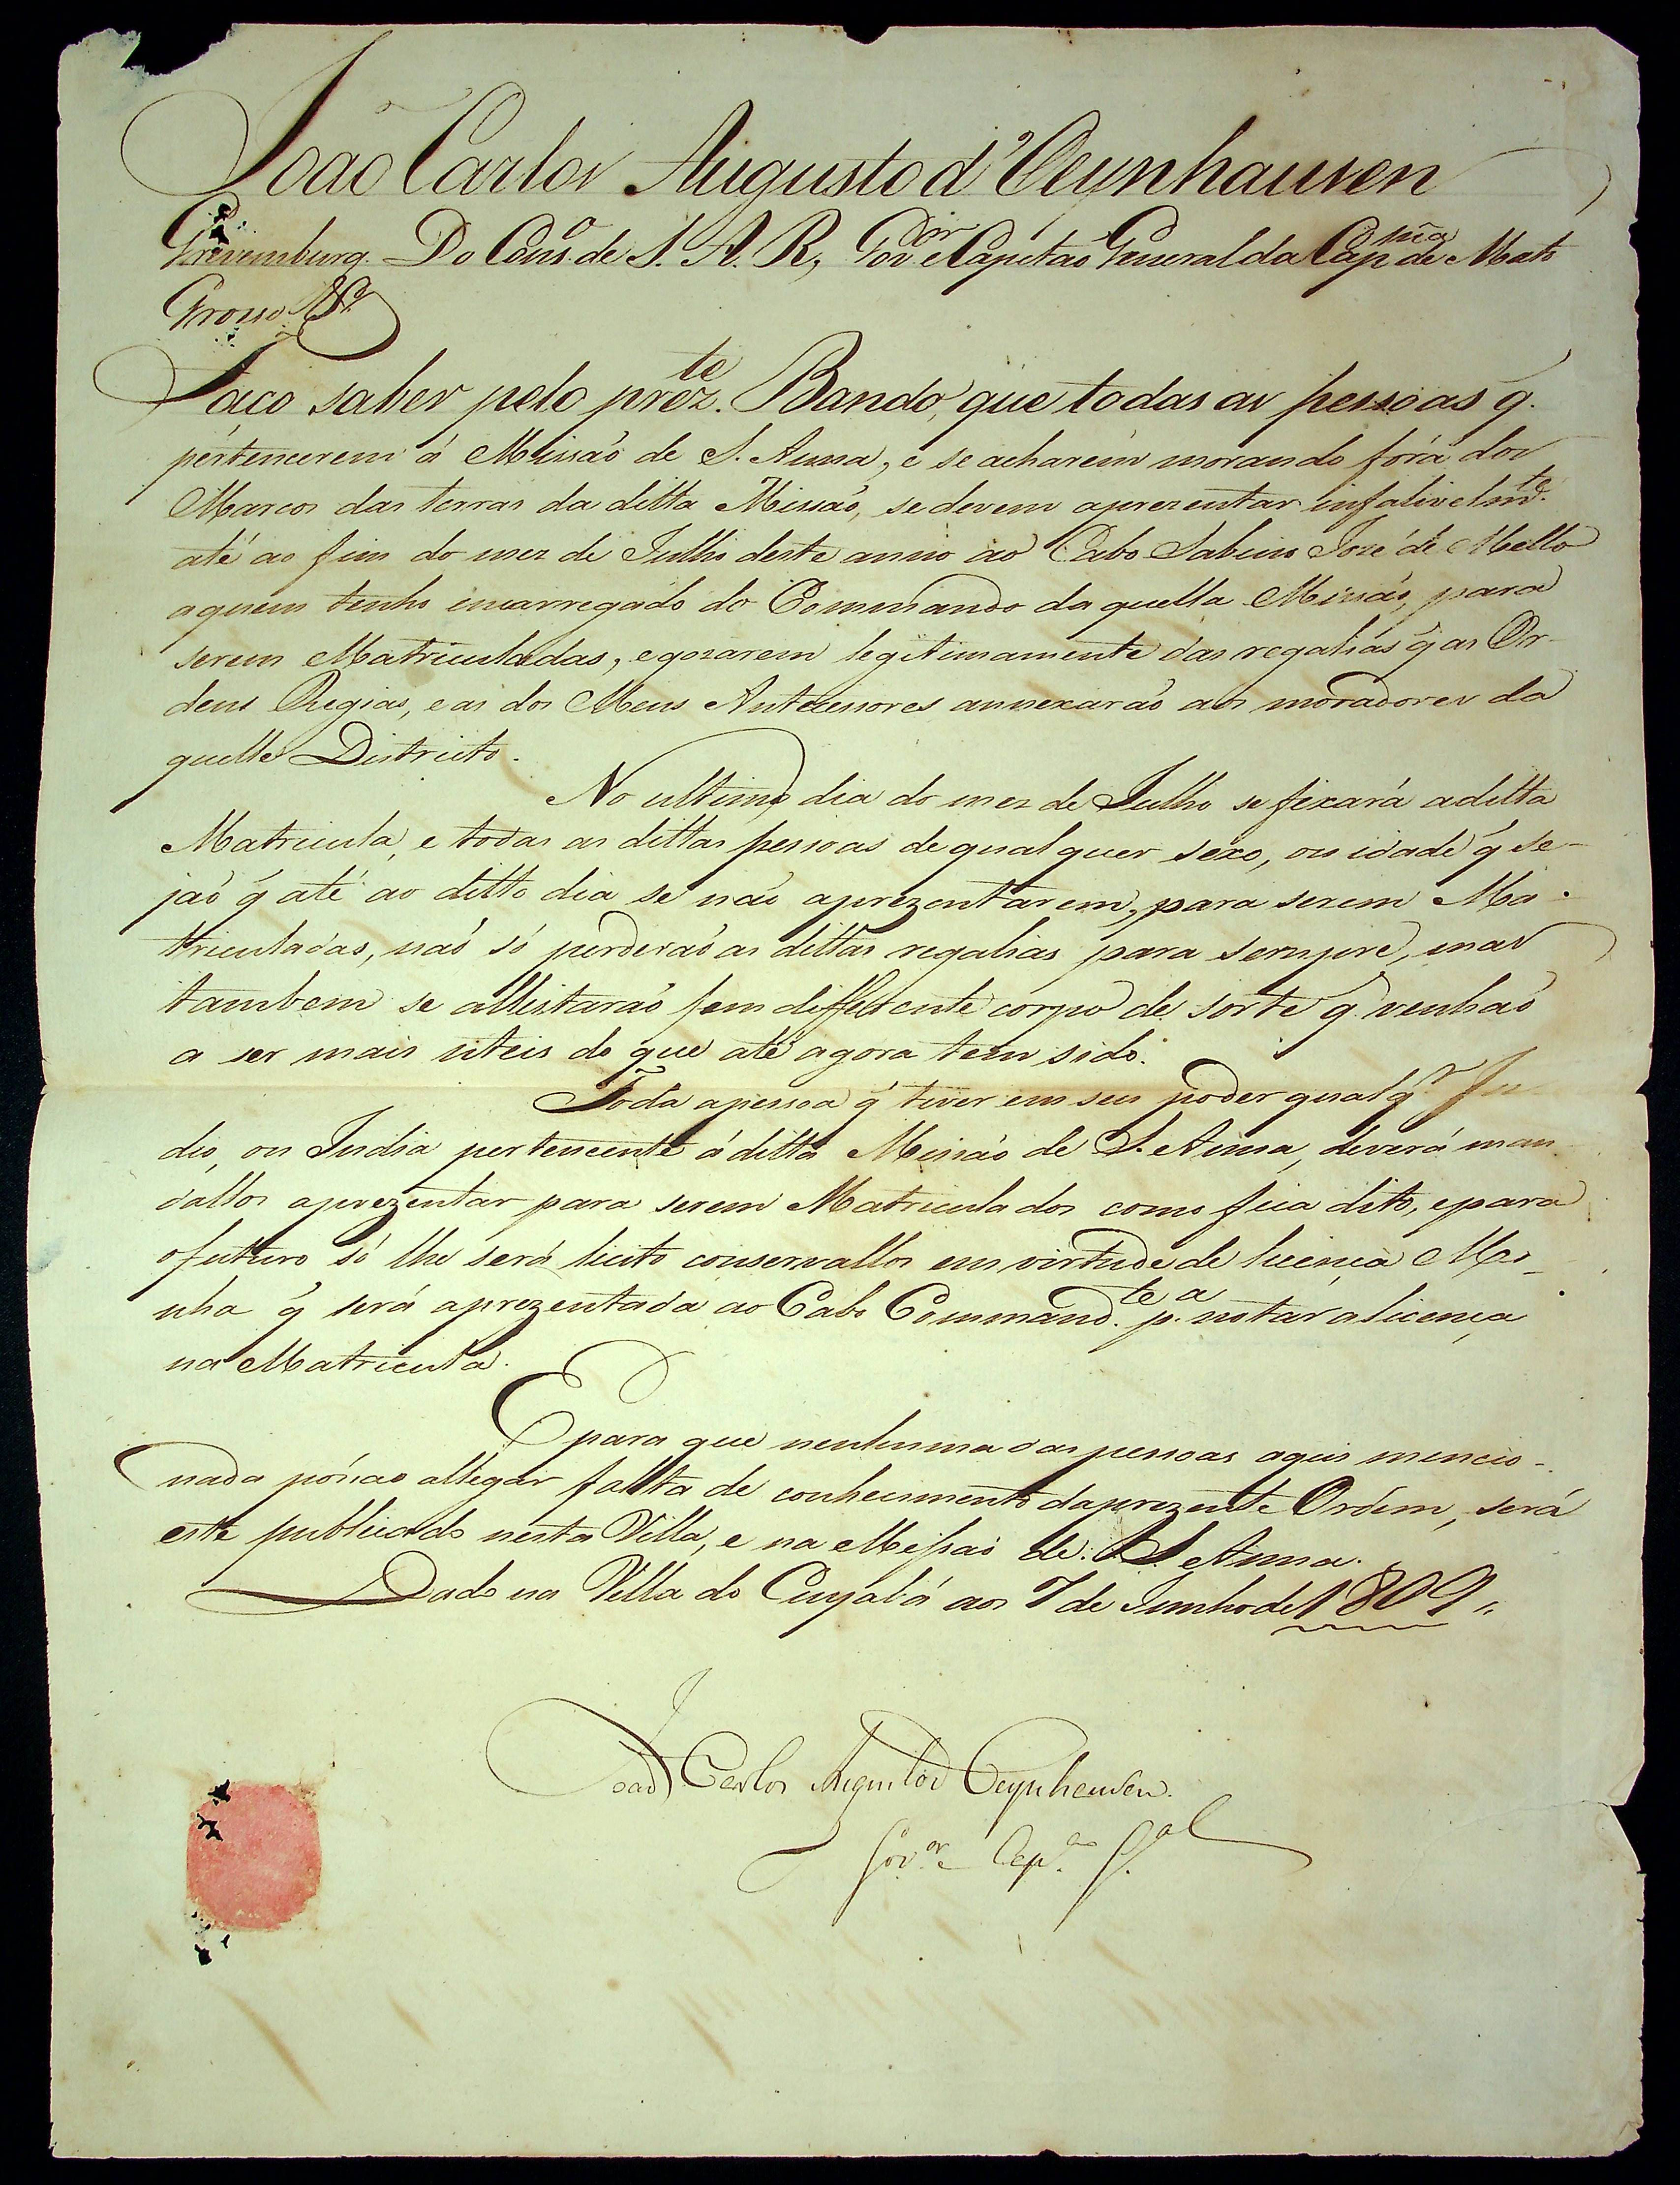 João Carlos Augusto d'Oeynhausen
Grevemburg. Do Cons.º de S. A. R., Gov.or e Capitaõ General da Cap.nia de Mato
Grosso &.ª
Faço saber pelo prez.te Bando, que todas as pessoas q̃.
pertencerem á Missaõ de S. Anna, e se acharem morando fóra dos
Marcos das terras da ditta Missaõ, se devem aprezentar infalivelm.te
até ao fim do mez de Julho deste anno ao Cabo Sabino Jozé de Mello
aquem tenho encarregado do Commando daquella Missaõ, para
serem Matriculadas, e gozarem legitimamente das regalias q̃ as Or-
dens Regias, e as dos Meus Antecessores annexaraõ aos moradores da
quelle Districto.
No ultimo dia do mez de Julho se fixará a ditta
Matricula, e todas as dittas pessoas de qualquer sexo, ou idade q̃ se-
jaõ q̃ até ao ditto dia se naõ aprezentarem, para serem Ma-
triculadas, naõ só perderaõ as dittas regalias para sempre, mas
tambem se allistaraõ em differente corpo de sorte q̃ venhaõ
a ser mais uteis do que até agora tem sido.
Toda a pessoa q̃ tiver em seu poder qualq̃.r In
dio, ou India pertencente á ditta Missaõ de S. Anna, deverá man
dallos aprezentar para serem Matriculados como fica dito, e para
o futuro só lhe será licito conservallos em virtude de licença Mi-
nha q̃ será aprezentada ao Cabo Command.te p.a notar a licença
na Matricula.
E para que nenhuma das pessoas aqui mencio-
nada póssaõ allegar falta de conhecimento da prezente Ordem, será
este publicado nesta Villa, e na Missaõ de S. Anna.
Dado na Villa do Cuyabá aos 7 de Junho de 1809,,
João Carlos Augusto d'Oeynhausen.
Gov.or e Cap.ão G.al